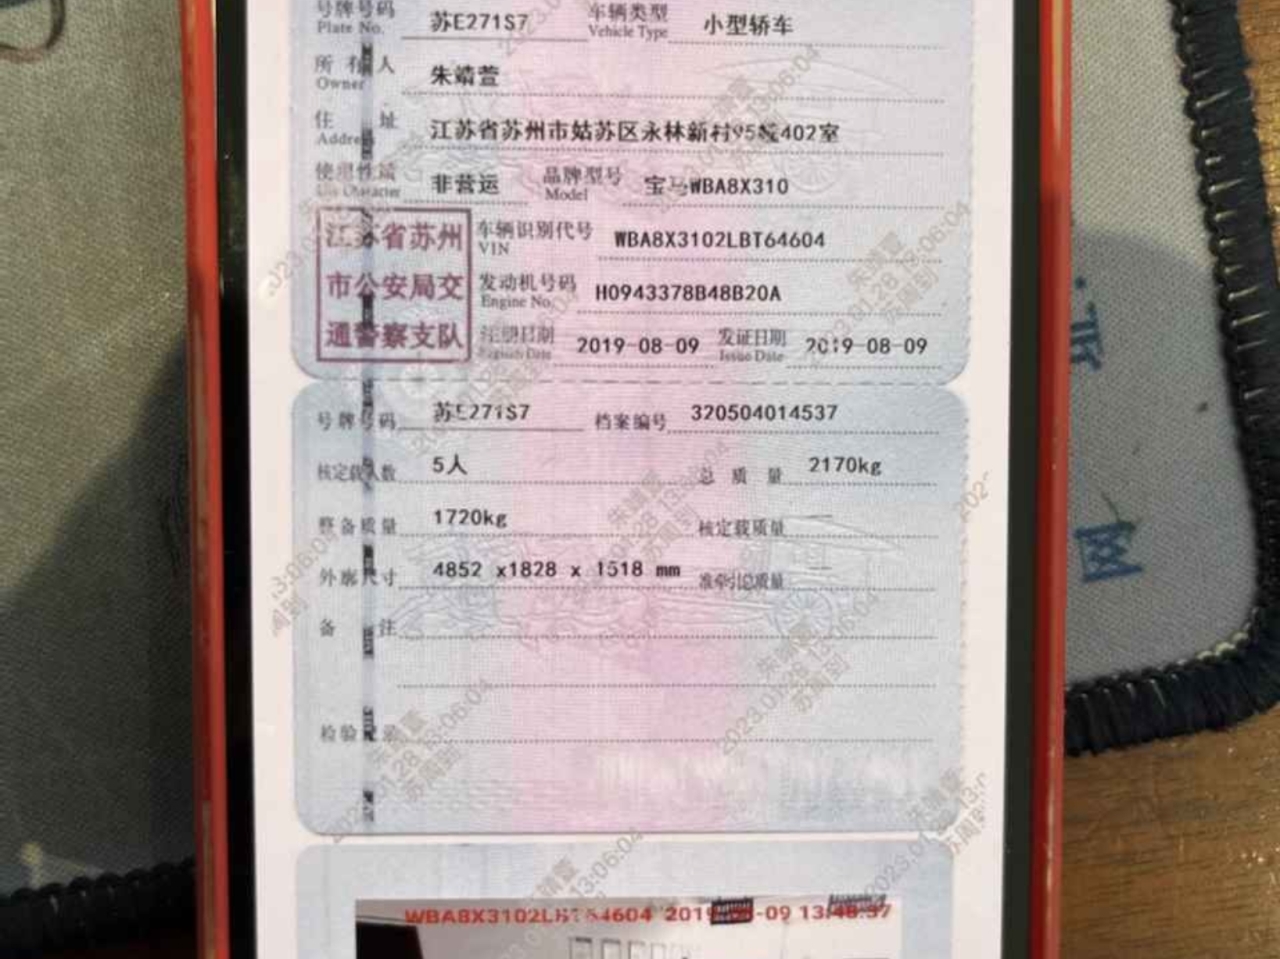 号牌号码 苏E271S7 车辆类型 小型轿车
Plate No. Vehicle Type
所有人 朱靖萱
Owner
住址 江苏省苏州市姑苏区永林新村95幢402室
Address
使用性质 非营运 品牌型号 宝马WBA8X310
Use Character Model
江苏省苏州 车辆识别代号 WBA8X3102LBT64604
VIN
市公安局交 发动机号码 H0943378B48B20A
Engine No.
通警察支队 注册日期 2019-08-09 发证日期 2019-08-09
Register Date Issue Date
号牌号码 苏E271S7 档案编号 320504014537
核定载人数 5人 总质量 2170kg
整备质量 1720kg 核定载质量 —
外廓尺寸 4852 x1828 x 1518 mm 准牵引总质量 —
备注
检验记录
WBA8X3102LBT64604 2019-08-09 13:48:37
朱靖萱
2023.01.28 13:06:04
苏周到
网